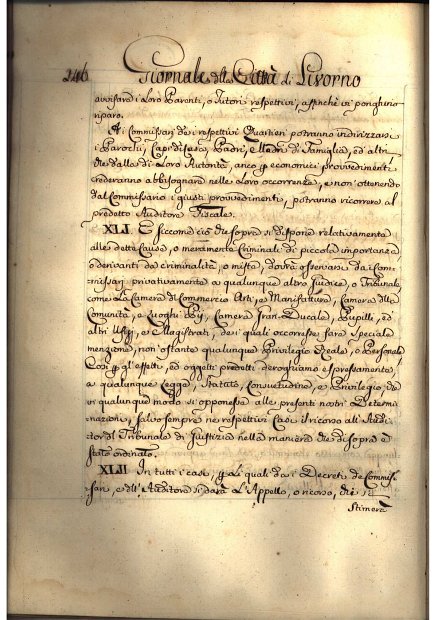 246 Giornale della Città di Livorno
avvisare i Loro Parenti, o Tutori respettivi, affinchè vi ponghino
riparo.
Ai Commissarj de i respettivi Quartieri potranno indirizzarsi
i Parochi, Capi di Casa, Padri, e Madri di Famiglia, ed altri
che dalla di Loro Autorità, anco p economici provvedimenti
crederanno abbisognare nelle Loro occorrenze, e non ottenendo
dal Commissario i giusti provvedimenti, potranno ricorrere al
predetto Auditore Fiscale.
XLI. E siccome ciò che sopra si dispone relativamente
alle dette Cause, o meramente Criminali di piccola importanza
o derivanti da criminalità, o miste, dovrà osservarsi da i Com-
missarj privativamente a qualunque altro Giudice, o Tribunale
come La Camera di Commercio Arti, e Manifatture, Camera delle
Comunità, e Luoghi Pij, Camera Gran-Ducale, Pupilli, ed
altri Ufizj, e Magistrati, de i quali occorresse fare speciale
menzione, non ostante qualunque Privilegio Reale, o Personale
Così p gl'effetti, ed oggetti predetti deroghiamo espressamente
a qualunque Legge, Statuto, Consuetudine, e Privilegio, che
in qualunque modo si opponesse alle presenti nostre Determi-
nazioni, salvo sempre ne respettivi Casi il ricorso all'Audi-
tore del Tribunale di Giustizia nella maniera che di sopra è
stato ordinato.
XLII. In tutti i casi, p li quali da i Decreti de Commis-
sarj, e dell'Auditore si darà L'Appello, o ricorso, che si
stimerà